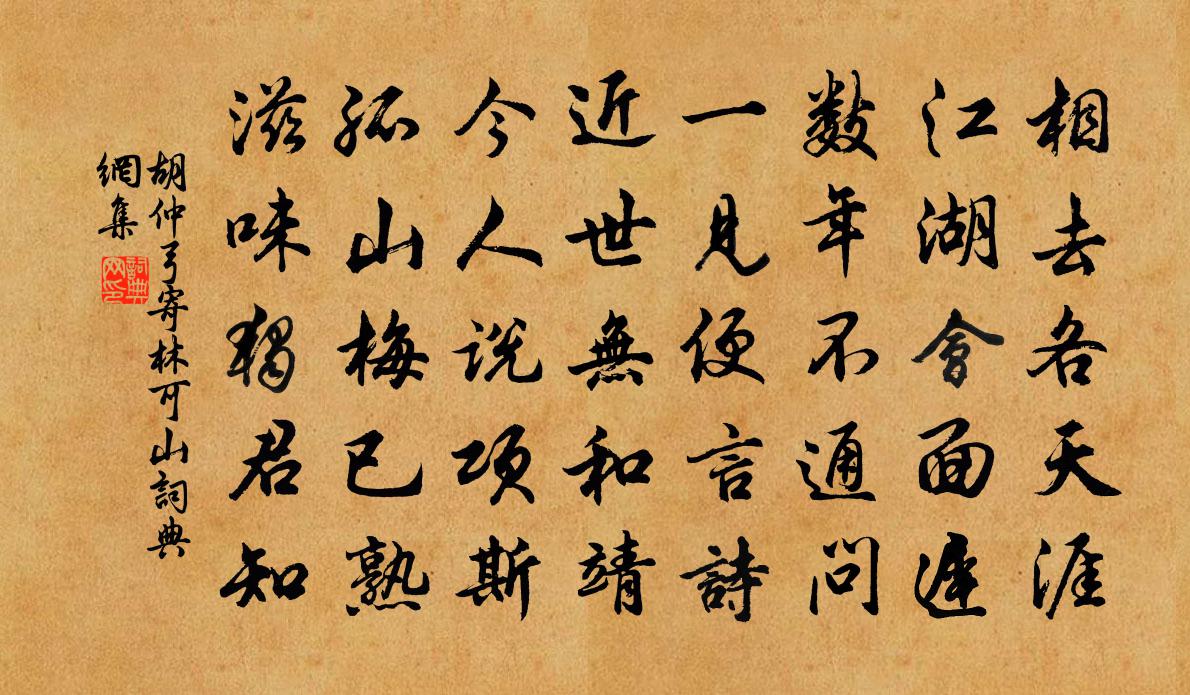 相去各天涯
江湖會面遲
数年不通問
一見便言詩
近世無和靖
今人説項斯
孤山梅已熟
滋味獨君知
胡仲弓寄林可山詞典
網集
詞典
网印